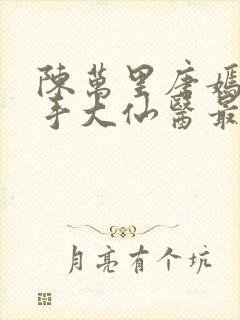 陳萬里唐嫣
手大仙醫最
月亮有个坑